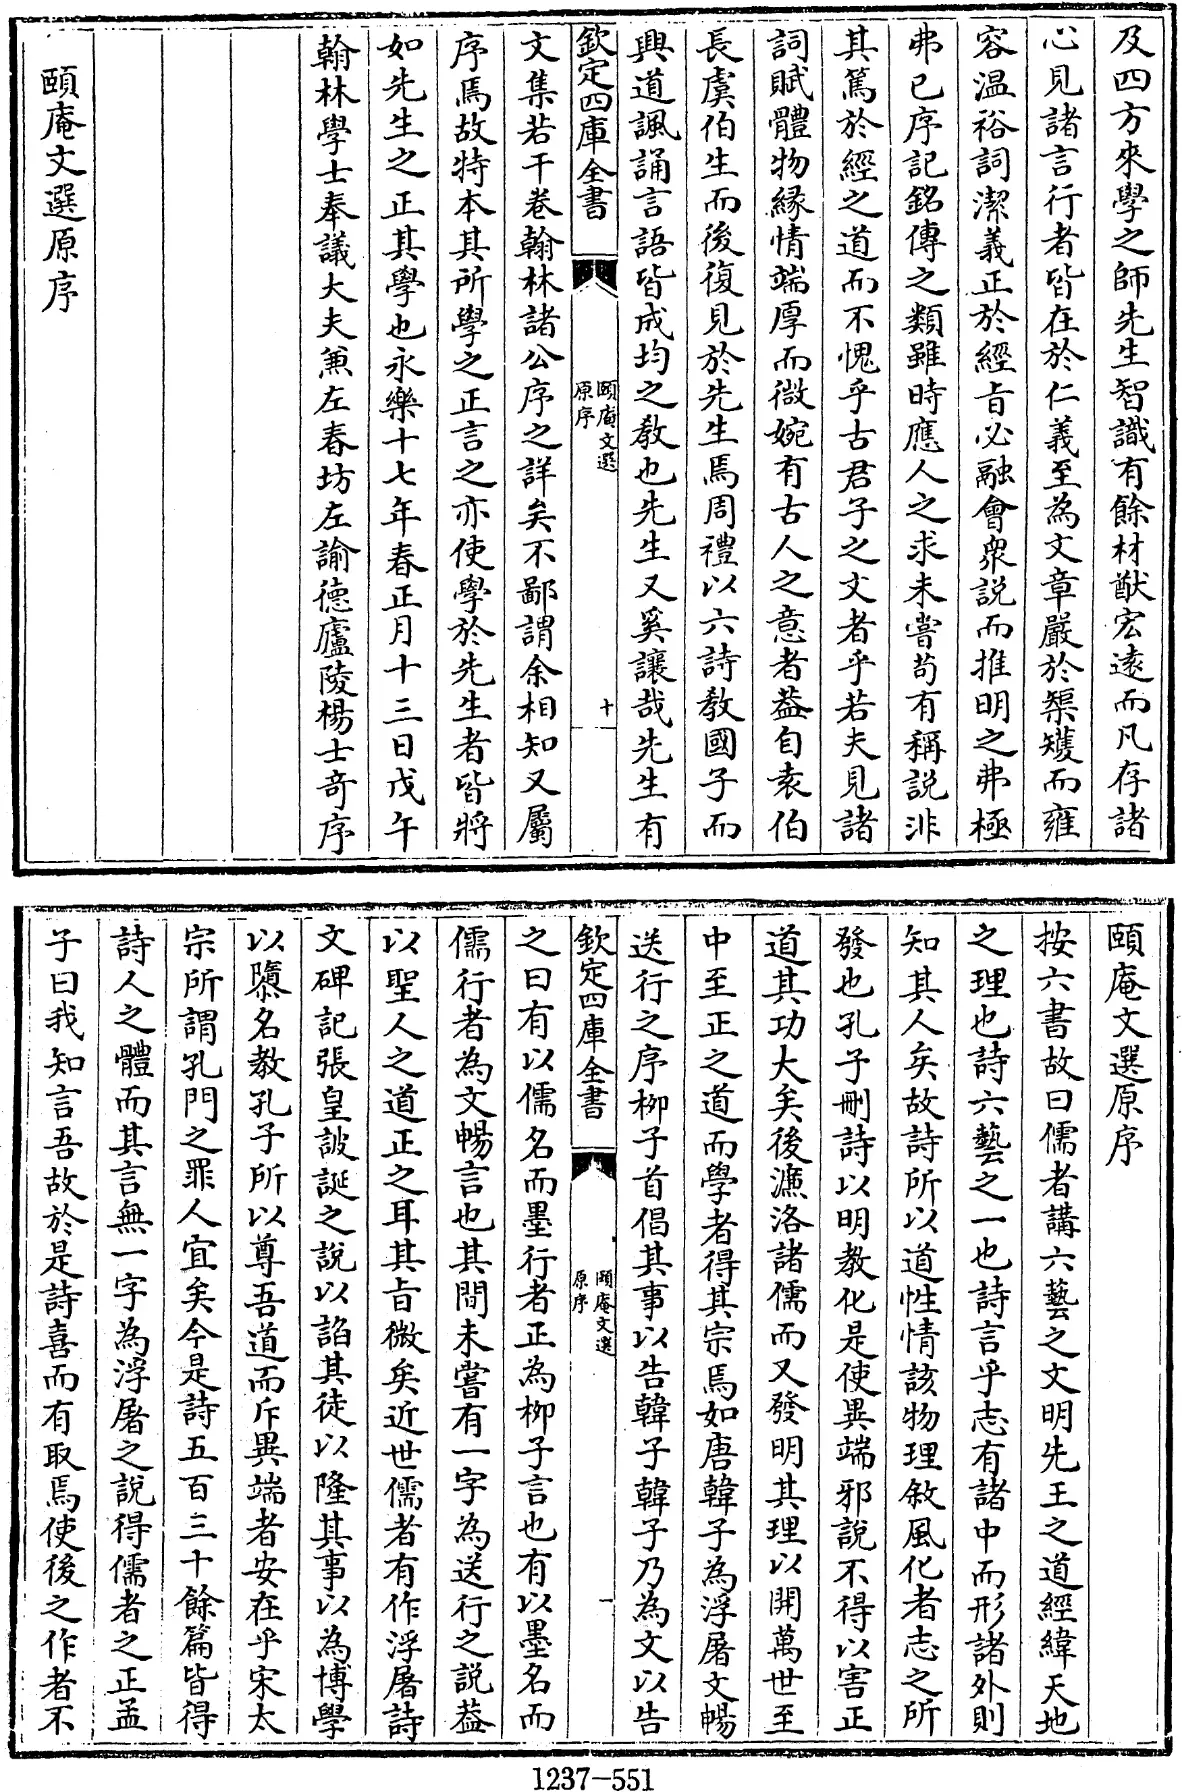 及四方來學之師先生智識有餘材猷宏遠而凡存諸
心見諸言行者皆在於仁義至為文章嚴於榘矱而雍
容温裕詞潔義正於經旨必融會衆説而推明之弗極
弗已序記銘傳之類雖時應人之求未嘗茍有稱説非
其篤於經之道而不愧乎古君子之文者乎若夫見諸
詞賦體物緣情端厚而微婉有古人之意者葢自袁伯
長虞伯生而後復見於先生焉周禮以六詩教國子而
興道諷誦言語皆成均之教也先生又奚讓哉先生有
欽定四庫全書
頤庵文選
原序
十
文集若干卷翰林諸公序之詳矣不鄙謂余相知又屬
序焉故特本其所學之正言之亦使學於先生者皆將
如先生之正其學也永樂十七年春正月十三日戊午
翰林學士奉議大夫兼左春坊左諭德廬陵楊士奇序
頤庵文選原序
頤庵文選原序
按六書故曰儒者講六藝之文明先王之道經緯天地
之理也詩六藝之一也詩言乎志有諸中而形諸外則
知其人矣故詩所以道性情該物理敘風化者志之所
發也孔子刪詩以明教化是使異端邪說不得以害正
道其功大矣後濂洛諸儒而又發明其理以開萬世至
中至正之道而學者得其宗焉如唐韓子為浮屠文暢
送行之序柳子首倡其事以告韓子韓子乃為文以告
欽定四庫全書
頤庵文選
原序
一
之曰有以儒名而墨行者正為柳子言也有以墨名而
儒行者為文暢言也其間未嘗有一字為送行之説葢
以聖人之道正之耳其旨微矣近世儒者有作浮屠詩
文碑記張皇詖誕之說以諂其徒以隆其事以為博學
以隳名教孔子所以尊吾道而斥異端者安在乎宋太
宗所謂孔門之罪人宜矣今是詩五百三十餘篇皆得
詩人之體而其言無一字為浮屠之說得儒者之正孟
子曰我知言吾故於是詩喜而有取焉使後之作者不
1237-551